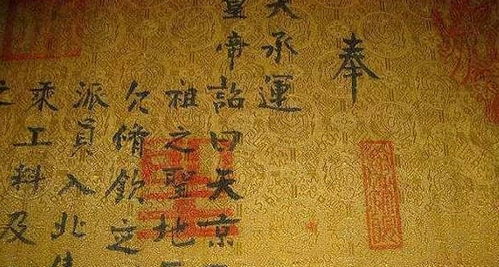 奉
天承運
皇帝詔曰天京
祖之聖地
欠脩欽定
派員入北
乘工料及